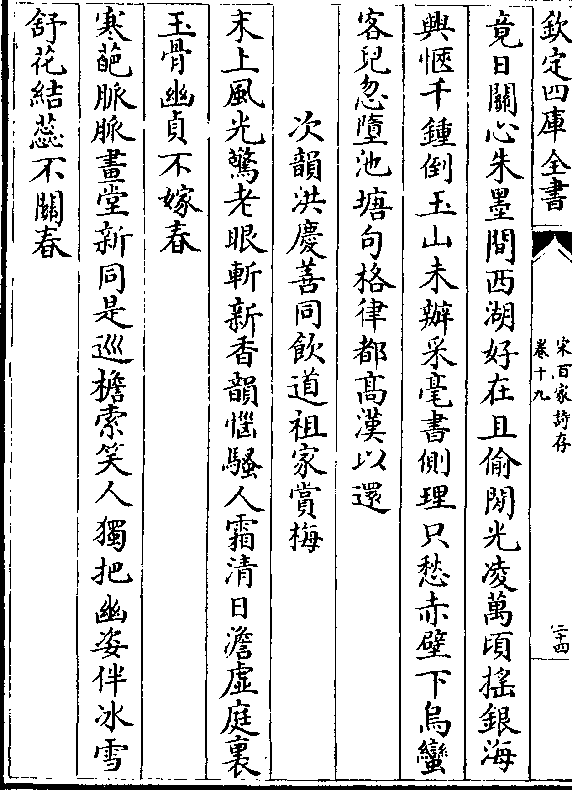 欽定四庫全書
宋百家詩存
卷十九
二十四
竟日關心朱墨間西湖好在且偷閒光凌萬頃搖銀海
興愜千鍾倒玉山未辦采毫書側理只愁赤壁下烏蠻
客兒忽墮池塘句格律都髙漢以還
次韻洪慶善同飲道祖家賞梅
末上風光驚老眼斬新香韻惱騷人霜清日澹虛庭裏
玉骨幽貞不嫁春
寒葩脈脈畫堂新同是巡檐索笑人獨把幽姿伴冰雪
舒花結蕊不關春